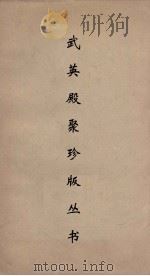 武英殿聚珍版丛书
mtoou.info